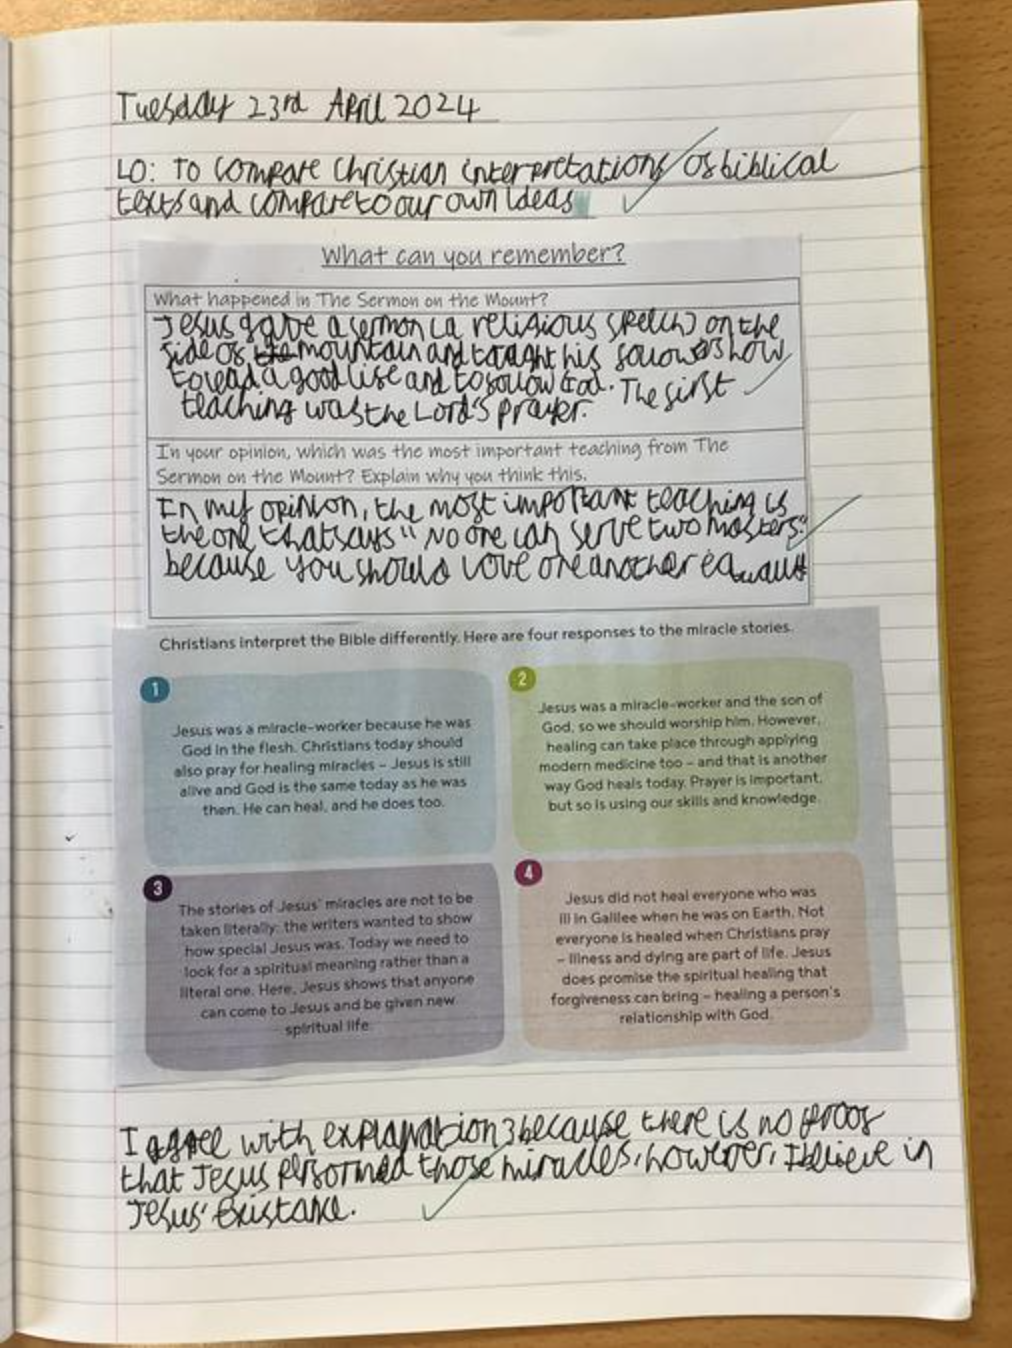 Tuesday 23rd April 2024
LO: To compare Christian interpretations of biblical
texts and compare to our own ideas
What can you remember?
What happened in The Sermon on the Mount?
Jesus gave a sermon (a religious speech) on the
side of the mountain and taught his followers how
to lead a good life and to follow God. The first
teaching was the Lord's prayer.
In your opinion, which was the most important teaching from The
Sermon on the Mount? Explain why you think this.
In my opinion, the most important teaching is
the one that says "No one can serve two masters."
because you should love one another
Christians interpret the Bible differently. Here are four responses to the miracle stories.
1
Jesus was a miracle-worker because he was
God in the flesh. Christians today should
also pray for healing miracles – Jesus is still
alive and God is the same today as he was
then. He can heal, and he does too.
2
Jesus was a miracle-worker and the son of
God, so we should worship him. However,
healing can take place through applying
modern medicine too – and that is another
way God heals today. Prayer is important,
but so is using our skills and knowledge.
3
The stories of Jesus' miracles are not to be
taken literally: the writers wanted to show
how special Jesus was. Today we need to
look for a spiritual meaning rather than a
literal one. Here, Jesus shows that anyone
can come to Jesus and be given new
spiritual life.
4
Jesus did not heal everyone who was
ill in Galilee when he was on Earth. Not
everyone is healed when Christians pray
– illness and dying are part of life. Jesus
does promise the spiritual healing that
forgiveness can bring – healing a person's
relationship with God.
I agree with explanation 3 because there is no proof
that Jesus performed those miracles, however, I believe in
Jesus' existance.